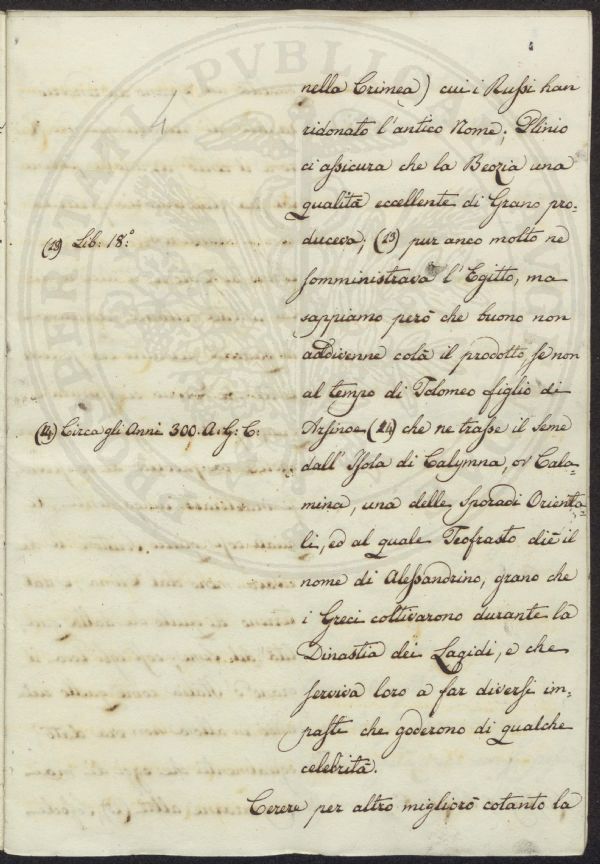 nella Crimea) cui i Russi han
ridonato l'antico Nome; Plinio
ci assicura che la Beozia una
qualità eccellente di Grano pro-
duceva; (13) pur anco molto ne
(13) Lib: 18.°
somministrava l'Egitto, ma
sappiamo però che buono non
addivenne colà il prodotto, se non
al tempo di Tolomeo figlio di
Arsinoe (14) che ne trasse il seme
(14) Circa gli Anni 300. A: G: C:
dall'Isola di Calymna, or Cala-
mina, una delle Sporadi Orienta-
li, ed al quale Teofrasto diè il
nome di Alessandrino, grano che
i Greci coltivarono durante la
Dinastia dei Lagidi, e che
serviva loro a far diversi im-
pasti che goderono di qualche
celebrità.
Cerere per altro migliorò cotanto la